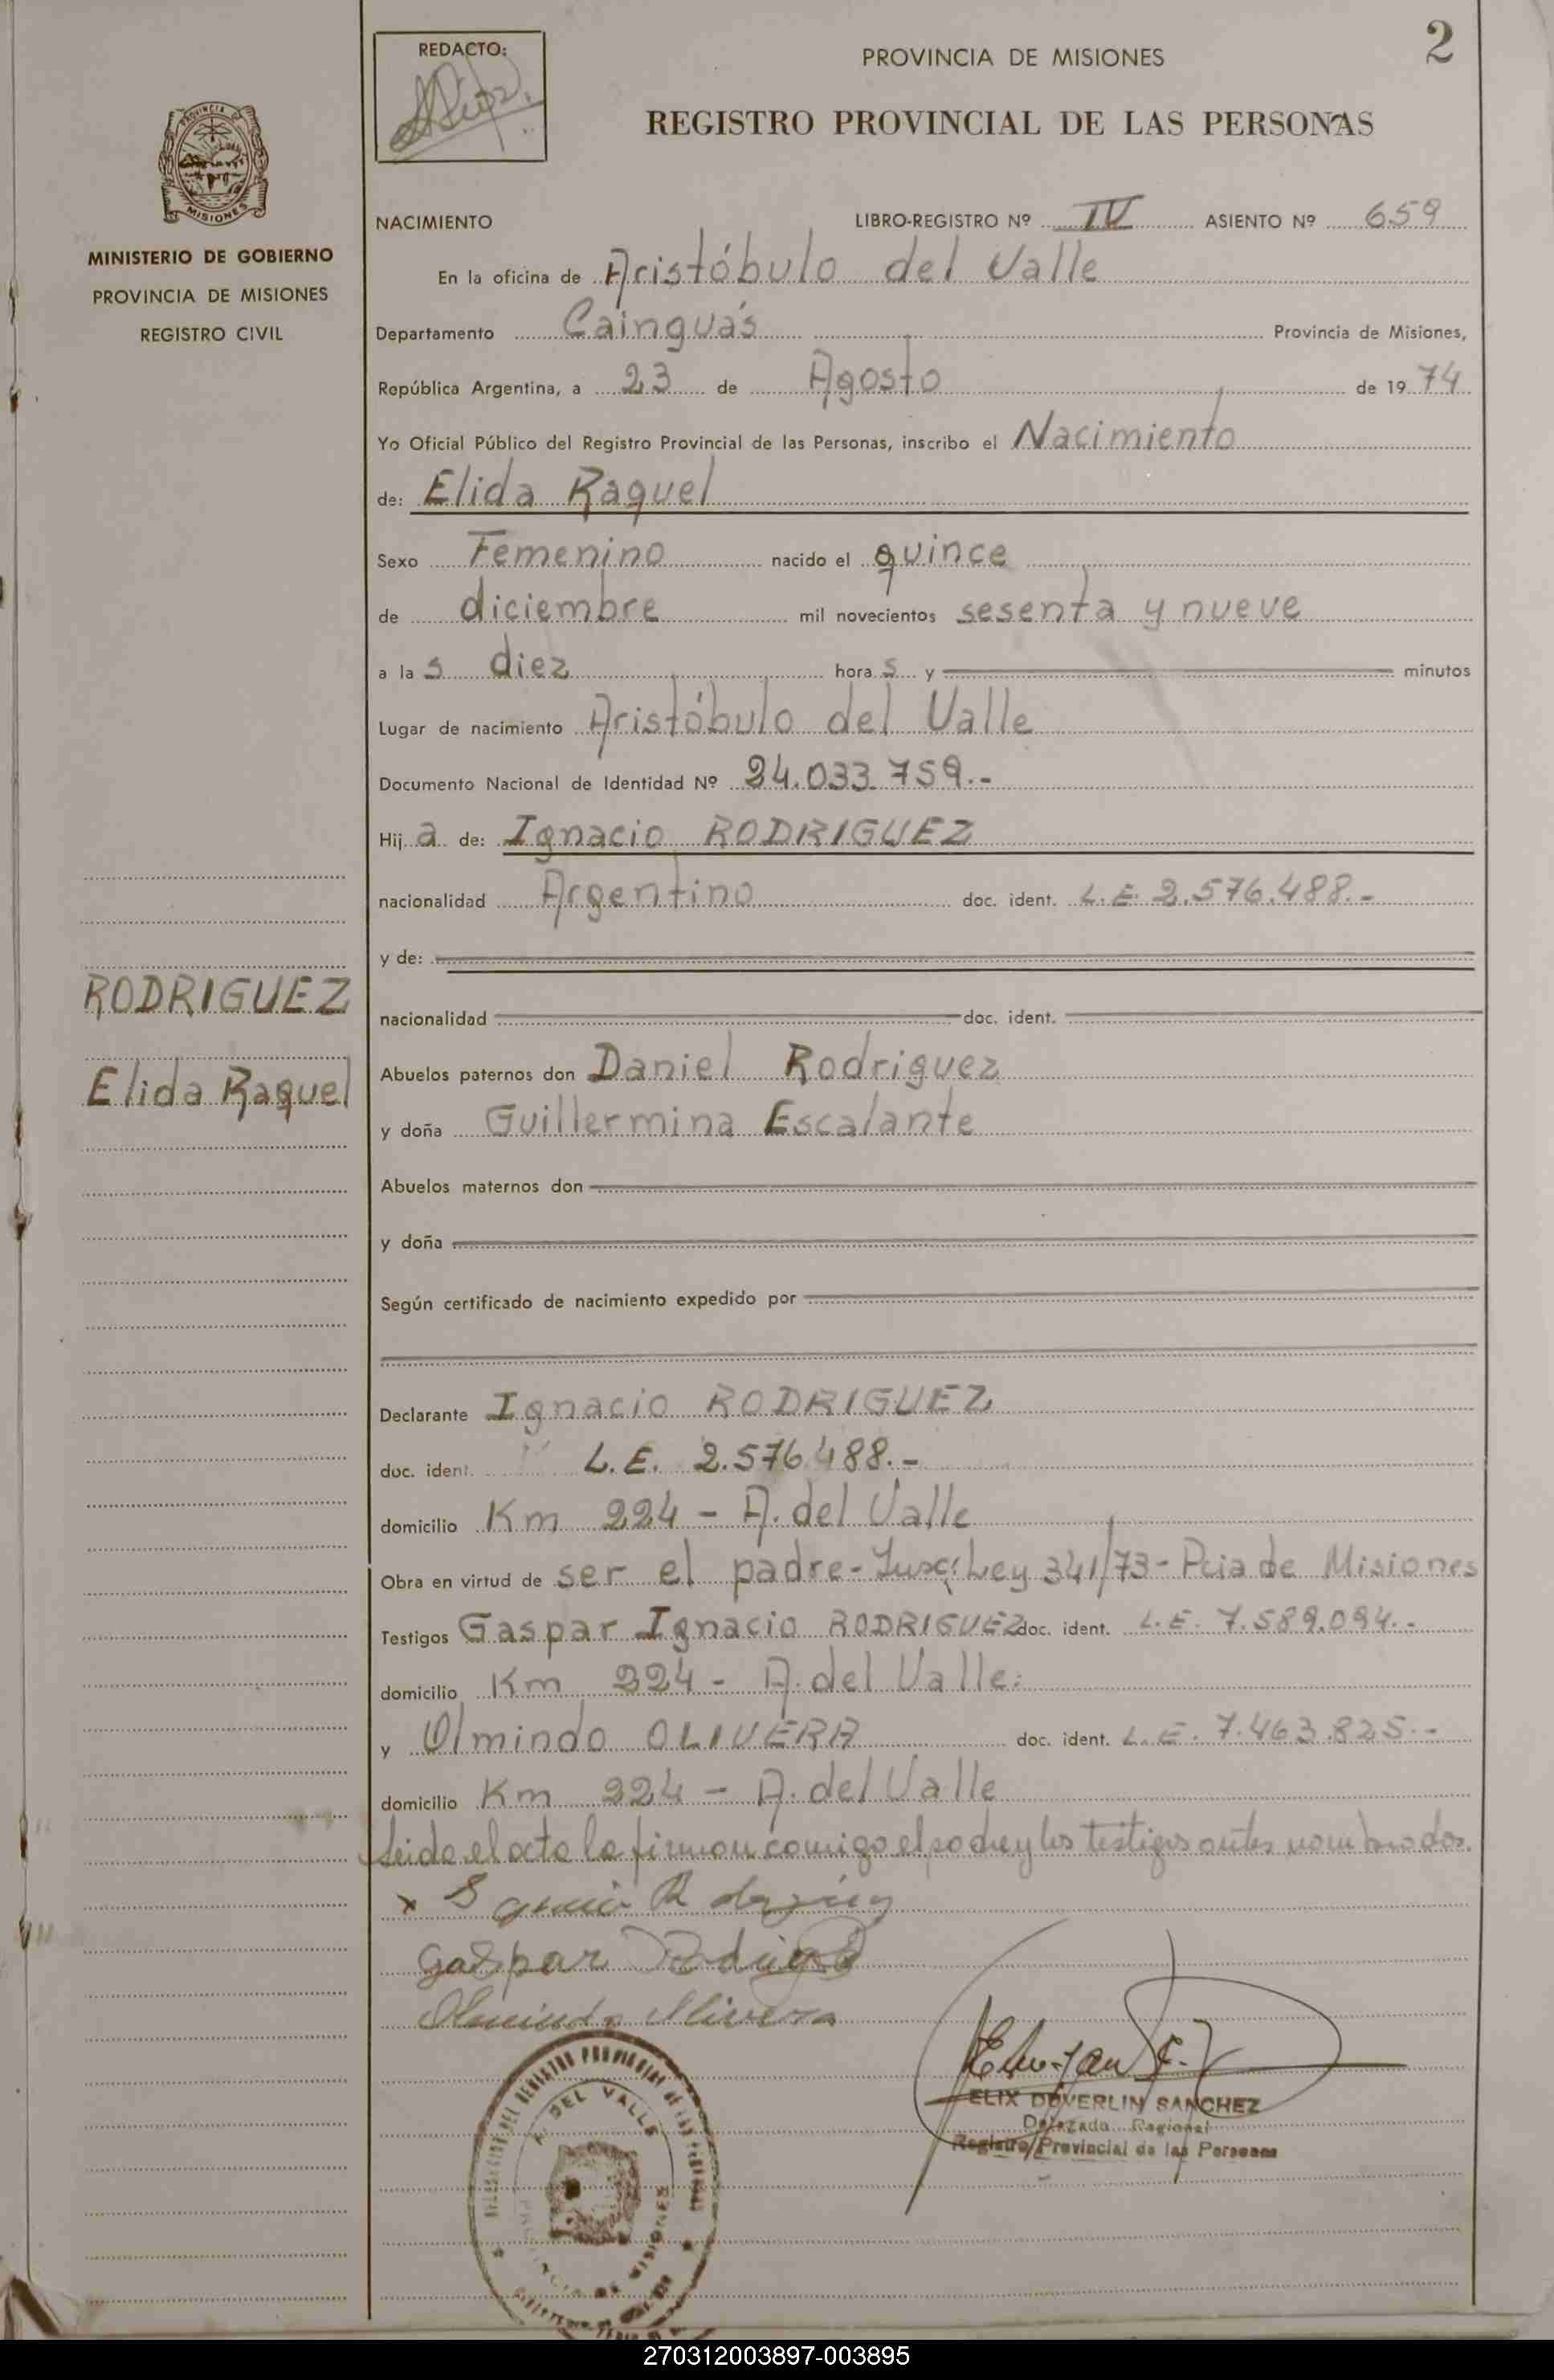 2
REDACTO:
PROVINCIA DE MISIONES
REGISTRO PROVINCIAL DE LAS PERSONAS
PROVINCIA
MISIONES
MINISTERIO DE GOBIERNO
PROVINCIA DE MISIONES
REGISTRO CIVIL
RODRIGUEZ
Elida Raquel
NACIMIENTO LIBRO-REGISTRO Nº IV ASIENTO Nº 659
En la oficina de Aristóbulo del Valle
Departamento Cainguás Provincia de Misiones,
República Argentina, a 23 de Agosto de 19 74
Yo Oficial Público del Registro Provincial de las Personas, inscribo el Nacimiento
de: Elida Raquel
Sexo Femenino nacido el quince
de diciembre mil novecientos sesenta y nueve
a la s diez hora s y minutos
Lugar de nacimiento Aristóbulo del Valle
Documento Nacional de Identidad Nº 24.033.759.-
Hij a de: Ignacio RODRIGUEZ
nacionalidad Argentino doc. ident. L.E. 2.576.488.-
y de:
nacionalidad doc. ident.
Abuelos paternos don Daniel Rodriguez
y doña Guillermina Escalante
Abuelos maternos don
y doña
Según certificado de nacimiento expedido por
Declarante Ignacio RODRIGUEZ
doc. ident. L.E. 2.576.488.-
domicilio Km 224 - A. del Valle
Obra en virtud de ser el padre - Ley 341/73 - Pcia de Misiones
Testigos Gaspar Ignacio RODRIGUEZ doc. ident. L.E. 7.589.094.-
domicilio Km 224 - A. del Valle.
y Olmindo OLIVERA doc. ident. L.E. 7.463.825.-
domicilio Km 224 - A. del Valle
Leida el acta la firman comigo el padre y los testigos antes nombrados.
x
Gaspar
Olmindo Olivera
ELIX DUVERLIN SANCHEZ
Delegado Regional
Registro Provincial de las Personas
A. DEL VALLE
PROVINCIA DE MISIONES
270312003897-003895